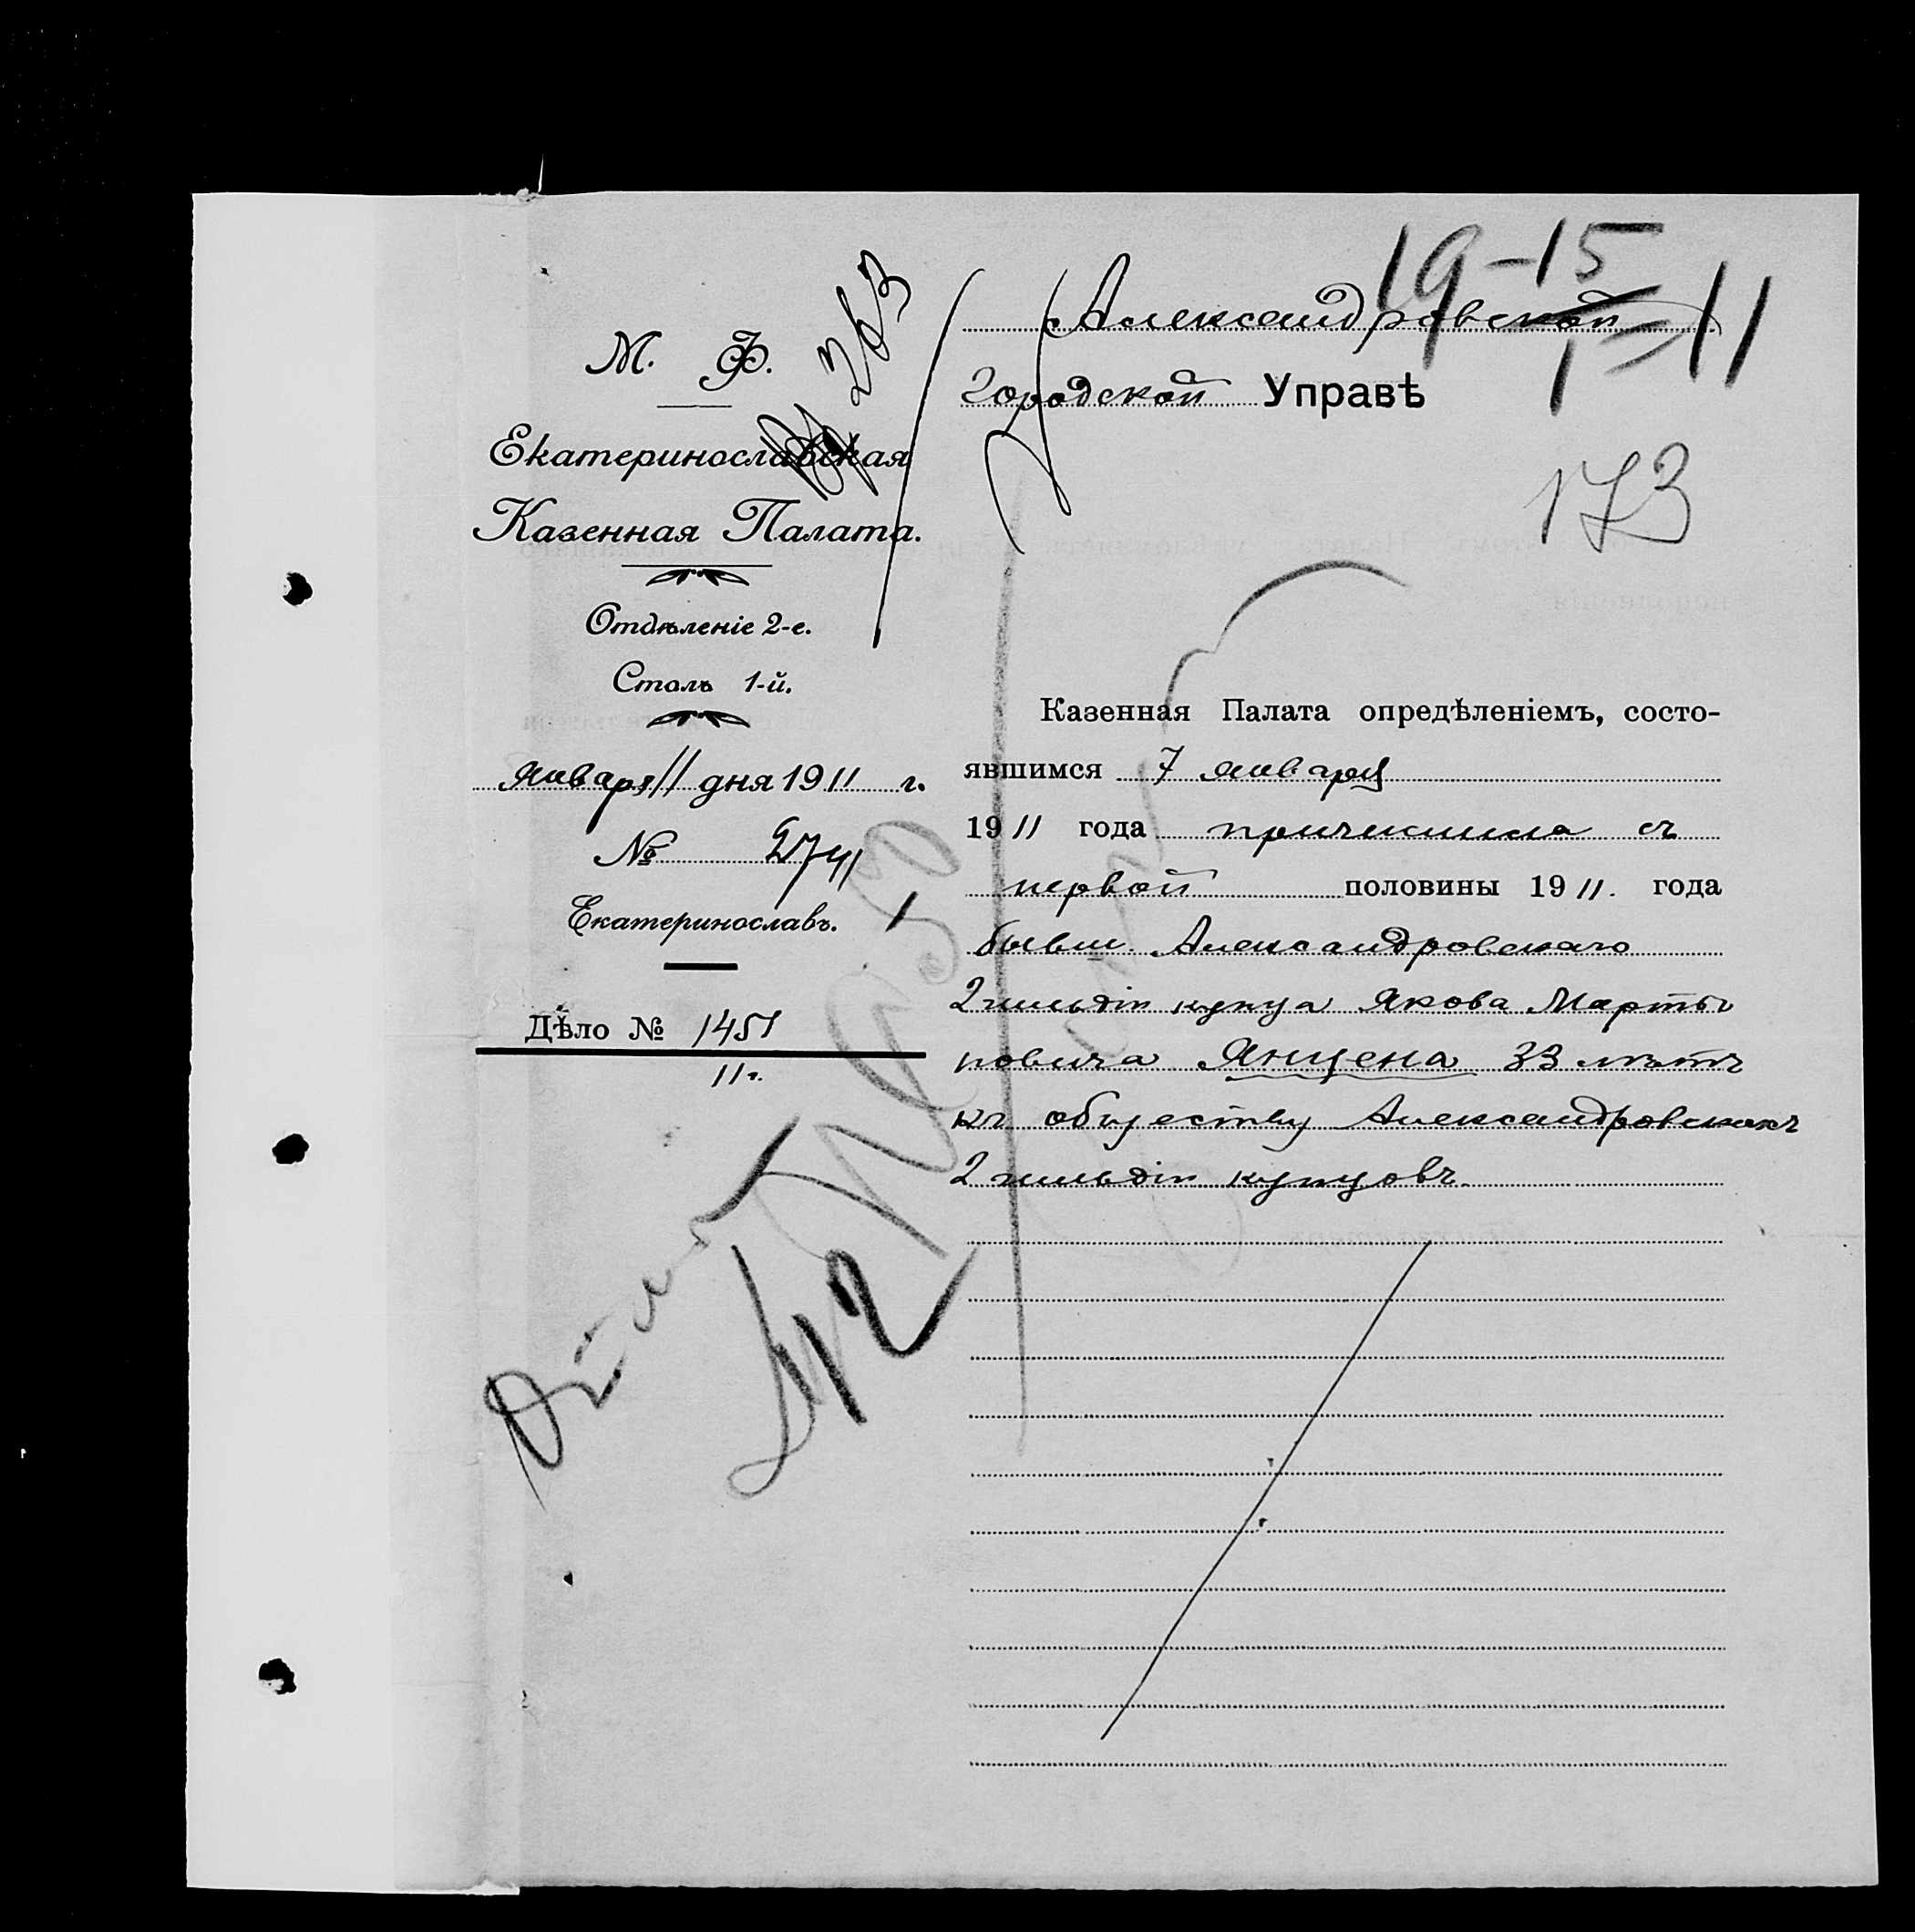 19-15
1=11
173
Александровской
Городской Управѣ
М. Ф.
Екатеринославская
Казенная Палата.
Отдѣленіе 2-е.
Столъ 1-й.
Января 11 дня 1911 г.
№ 2741
Екатеринославъ.
Дѣло № 1451
11 г.
Казенная Палата опредѣленіемъ, состо-
явшимся 7 января
1911 года причислила съ
первой половины 1911. года
бывш. Александровскаго
2 гильдіи купца Якова Марты
новича Янцена 33 лѣтъ
къ обществу Александровскихъ
2 гильдіи купцовъ.